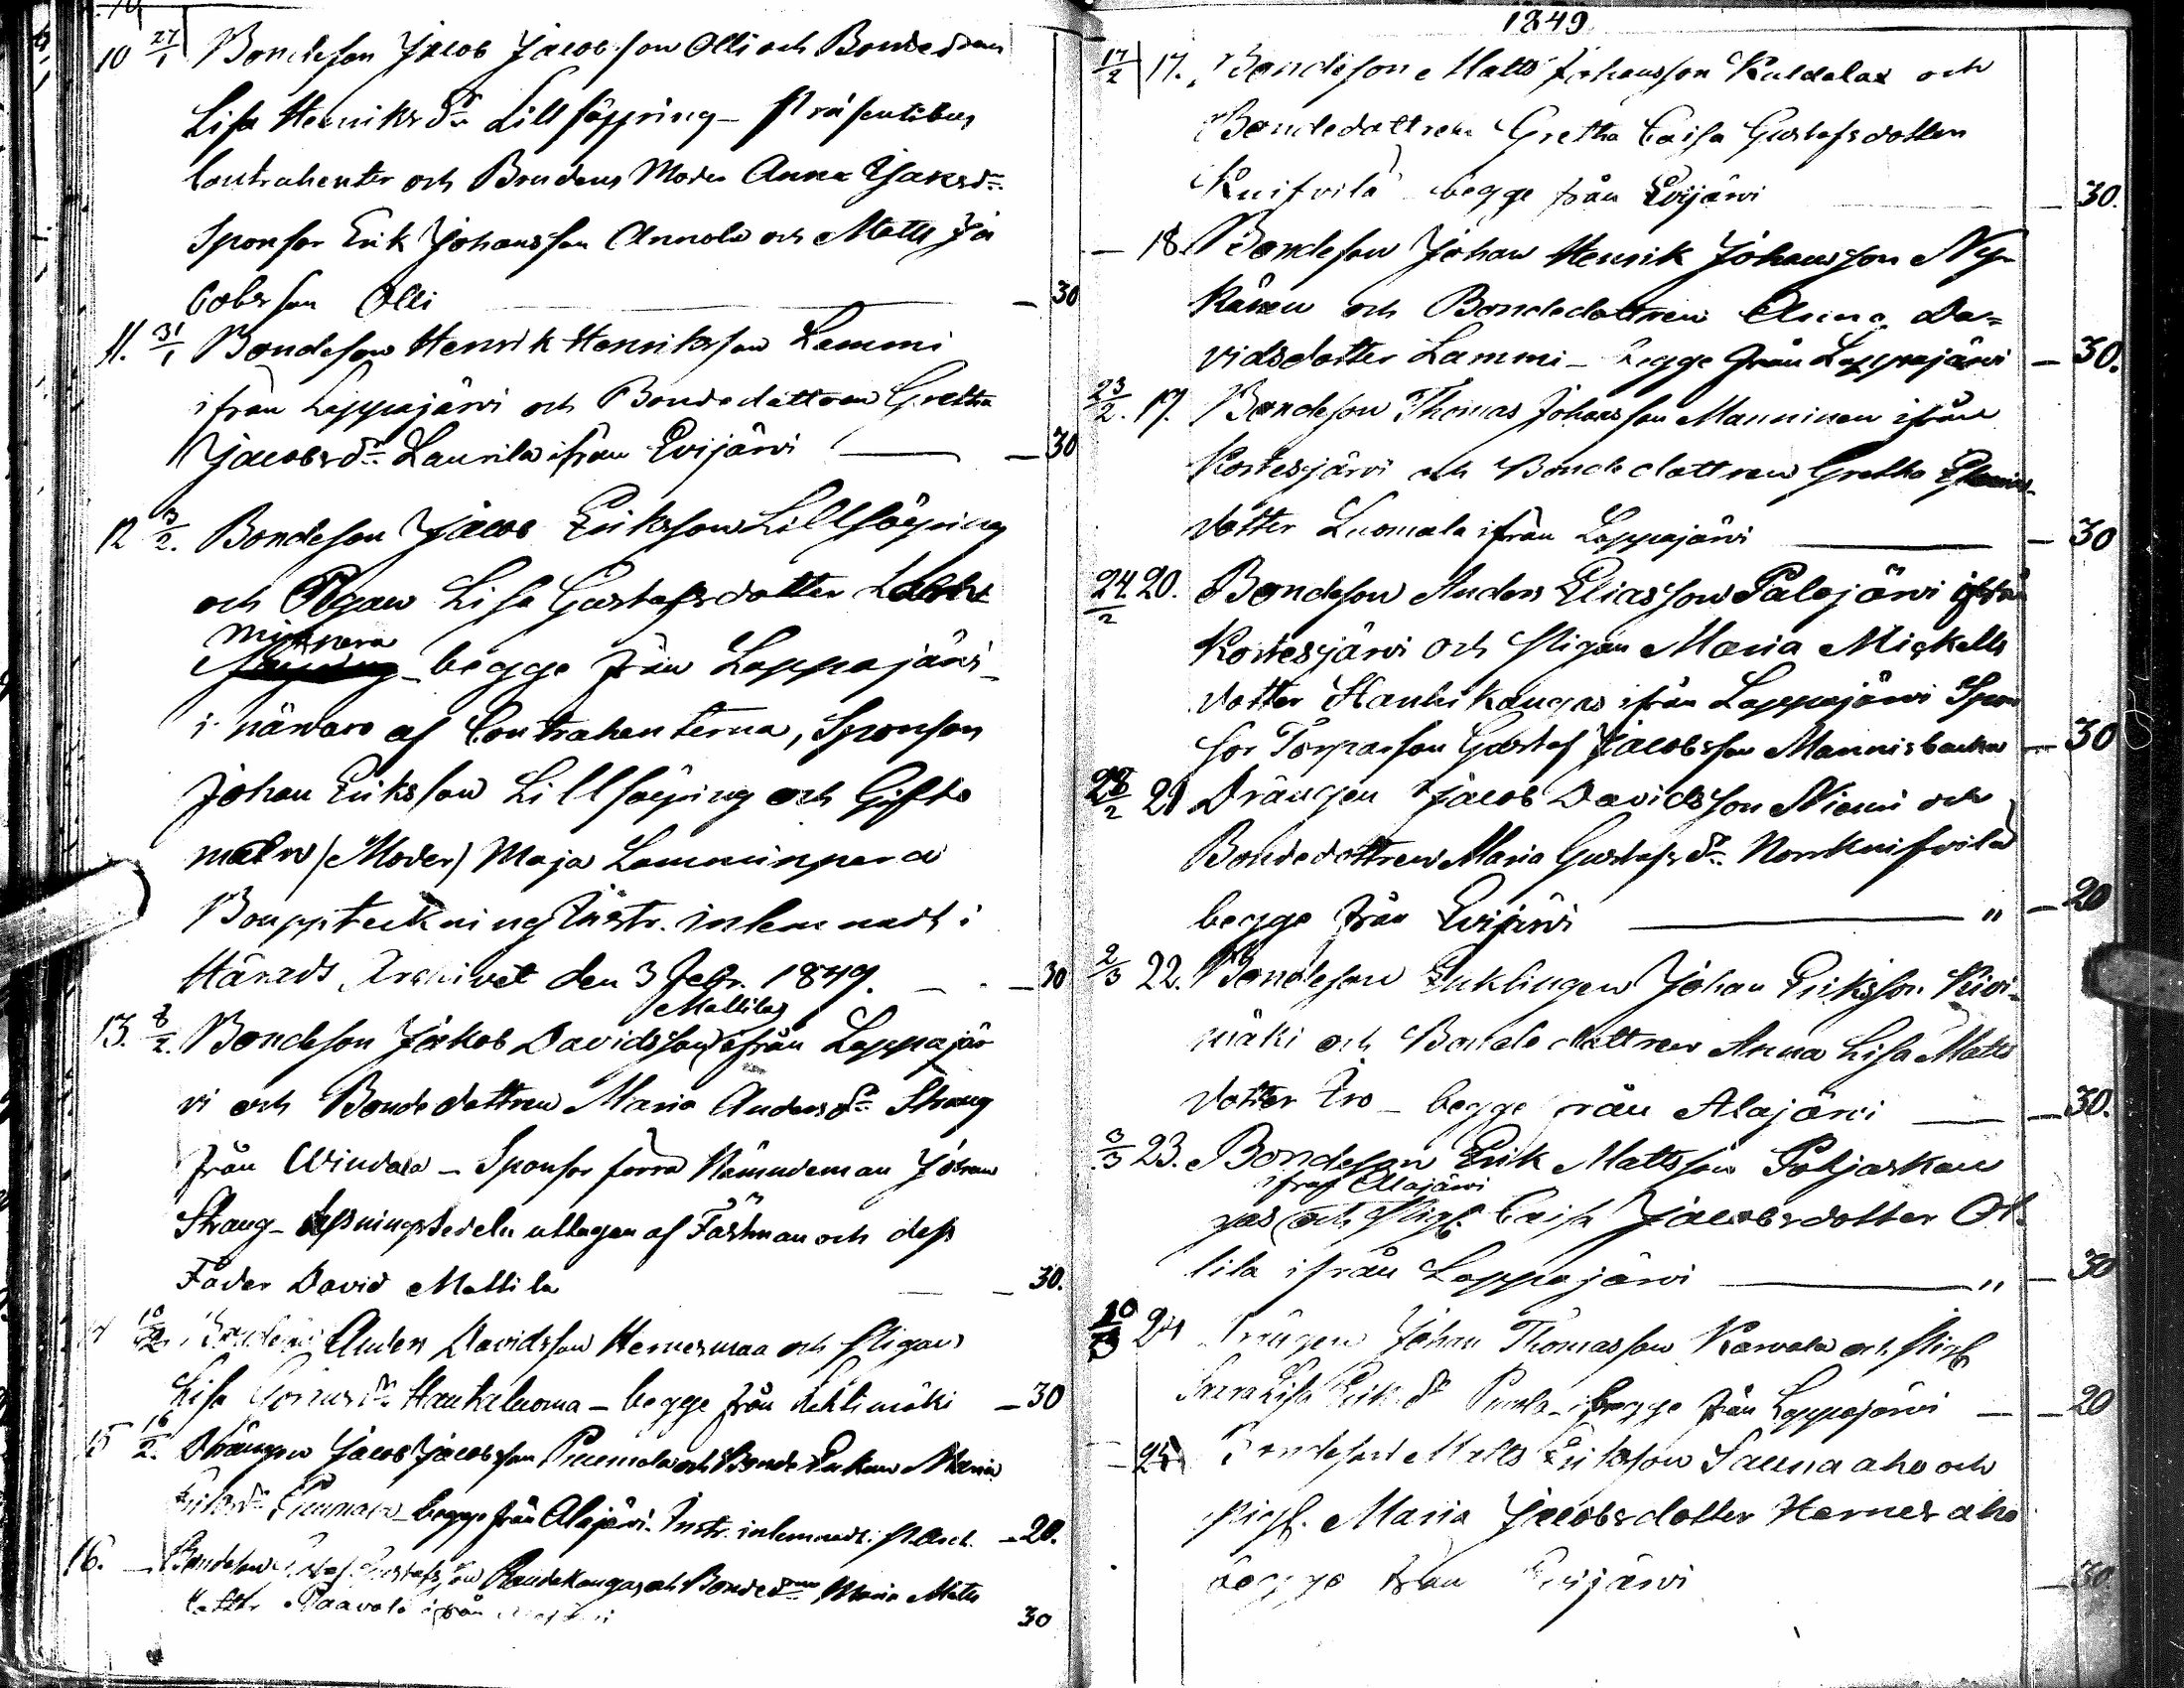 10 27/1 Bondeson Jacob Jacobsson Olli och Bondedtren
Lisa Henriksdr Lillsöyring – präsentibus
Contrahenter och Brudens Moder Anna Isaksdr
Sponsor Erik Johansson Annola och Matts Ja
cobsson Olli — 30
11. 31/1 Bondeson Henrik Henriksson Lammi
ifrån Lappajärvi och Bondedottren Gretha
Jacobsdr Laurila ifrån Evijärvi — 30
12 3/2. Bondeson Jacob Eriksson Lillsöyring
och Pigan Lisa Gustafsdotter
minpera
begge från Lappajärvi –
i närvaro af Contrahenterna, Sponson
Johan Eriksson Lillsöyring och Gifto
man (Moder) Maja Lamminpera
Bouppteckning Instr. inlemnadt i
Härads Archivet den 3 Febr. 1849. — 30
Mattila
13. 8/2. Bondeson Jakob Davidsson ifrån Lappajär
vi och Bondedottren Maria Andersdr Strang
från Windala – Sponsor förra Nämndeman Johan
Strang – Lysningssedeln uttagen af Fästman och dess
Fader David Mattila — 30.
Anders Davidsson Hernesmaa och Pigan
Lisa Hautaluoma – begge från Lehtimäki — 30
15 16/2. Drängen Jacob Jacobsson Puumala och Bonde Enkan Maria
begge från Alajärvi. Instr. inlemnadt. — 20.
16. — Bondeson Gustafsson Raudakangas och Bondedtren Maria Matts
dotter Paavola ifrån 30
1849
17/2 17. Bondeson Matts Johansson Kuldalax och
Bondedottren Gretha Caisa Gustafsdotter
Knifvilä begge från Evijärvi — 30.
— 18. Bondeson Johan Henrik Johansson Ny-
känen och Bondedottren Anna Da=
vidsdotter Lammi – begge från Lappajärvi — 30.
23/2. 19. Bondeson Thomas Johansson Manninen ifrån
Kortesjärvi och Bondedottren Gretha
dotter Luomala ifrån Lappajärvi — 30
24/2 20. Bondeson Anders Eliasson Palojärvi ifrån
Kortesjärvi och Pigan Maria Mickells
dotter Hauhikangas ifrån Lappajärvi Spon
sor Torparson Gustaf Jacobsson Mannisbacka — 30
28/2 21 Drängen Jacob Davidsson Niemi och
Bondedottren Maria Gustafsdr Norrknifvilä
begge från Evijärvi — " — 20
2/3 22. Bondeson Enklingen Johan Eriksson Kivi-
mäki och Bondedottren Anna Lisa Matts
dotter Iro – begge från Alajärvi — 30.
3/3 23. Bondeson Erik Mattsson Pohjaskan
ifrån Alajärvi
gas och Pig. Caisa Jacobsdotter Ol.
lila ifrån Lappajärvi — " — 30
10/3 24 Drängen Johan Thomasson Karvala och Pig.
Lisa Eriksdr begge från Lappajärvi — 20
— 25 Bondeson Matts Eriksson Saunaaho och
Pig. Maria Jacobsdotter Hernesaho
begge från Evijärvi — 30.